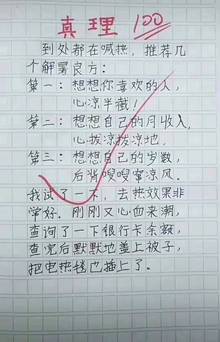 真理 100
到处都在喊热，推荐几
个解暑良方：
第一：想想你喜欢的人，
心凉半截！
第二：想想自己的月收入，
心拨凉拨凉地
第三：想想自己的岁数，
后背嗖嗖冒凉风。
我试了一下，去热效果非
常好。刚刚又心血来潮，
查询了一下银行卡余额，
查完后默默地盖上被子，
把电热毯也插上了。